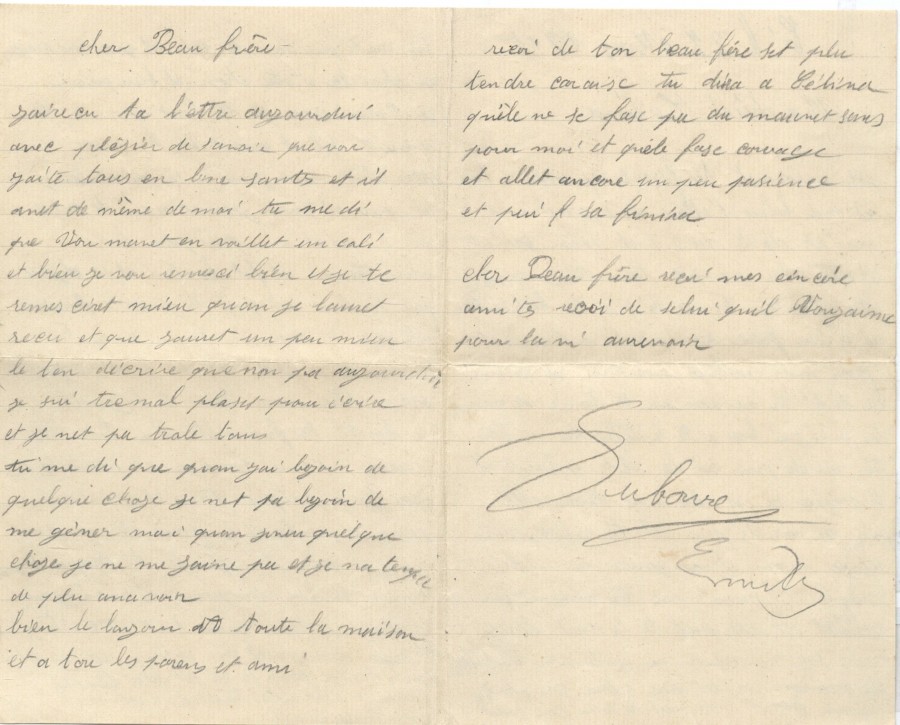 cher Beau frère
jairecu ta l'ettre aujourdui
avec plésier de savoir que vou
zaite tous en bone santé et il
anet de même de moi tu me di
que Vou manet en voillet un coli
et bien je vou remerci bien et je te
remerciret mieu quan je lauret
recu et que jauret un peu mieu
le ten décrire quenon pa aujourdui
je sui tremal plaset pour écrire
et je net pa trole tans
tu me di que quan jai bezoin de
quelque choze je net pa bezoin de
me géner mai quan jveu quelque
choze je ne me jaine pa et je na
de plu anavoir
bien le bonjour a toute la maison
et a tou les parens et ami
recoi de ton beau frére set plu
tendre caraise tu dira a Célina
quéle ne se fase pa du mauvet sans
pour moi et quéle fase courage
et allet ancore un peu pasience
et pui sa finira
cher Beau frère recui mes cincére
amités recoi de selui quil Vouzaime
pour la vi aurevoir
Duboure
Emile